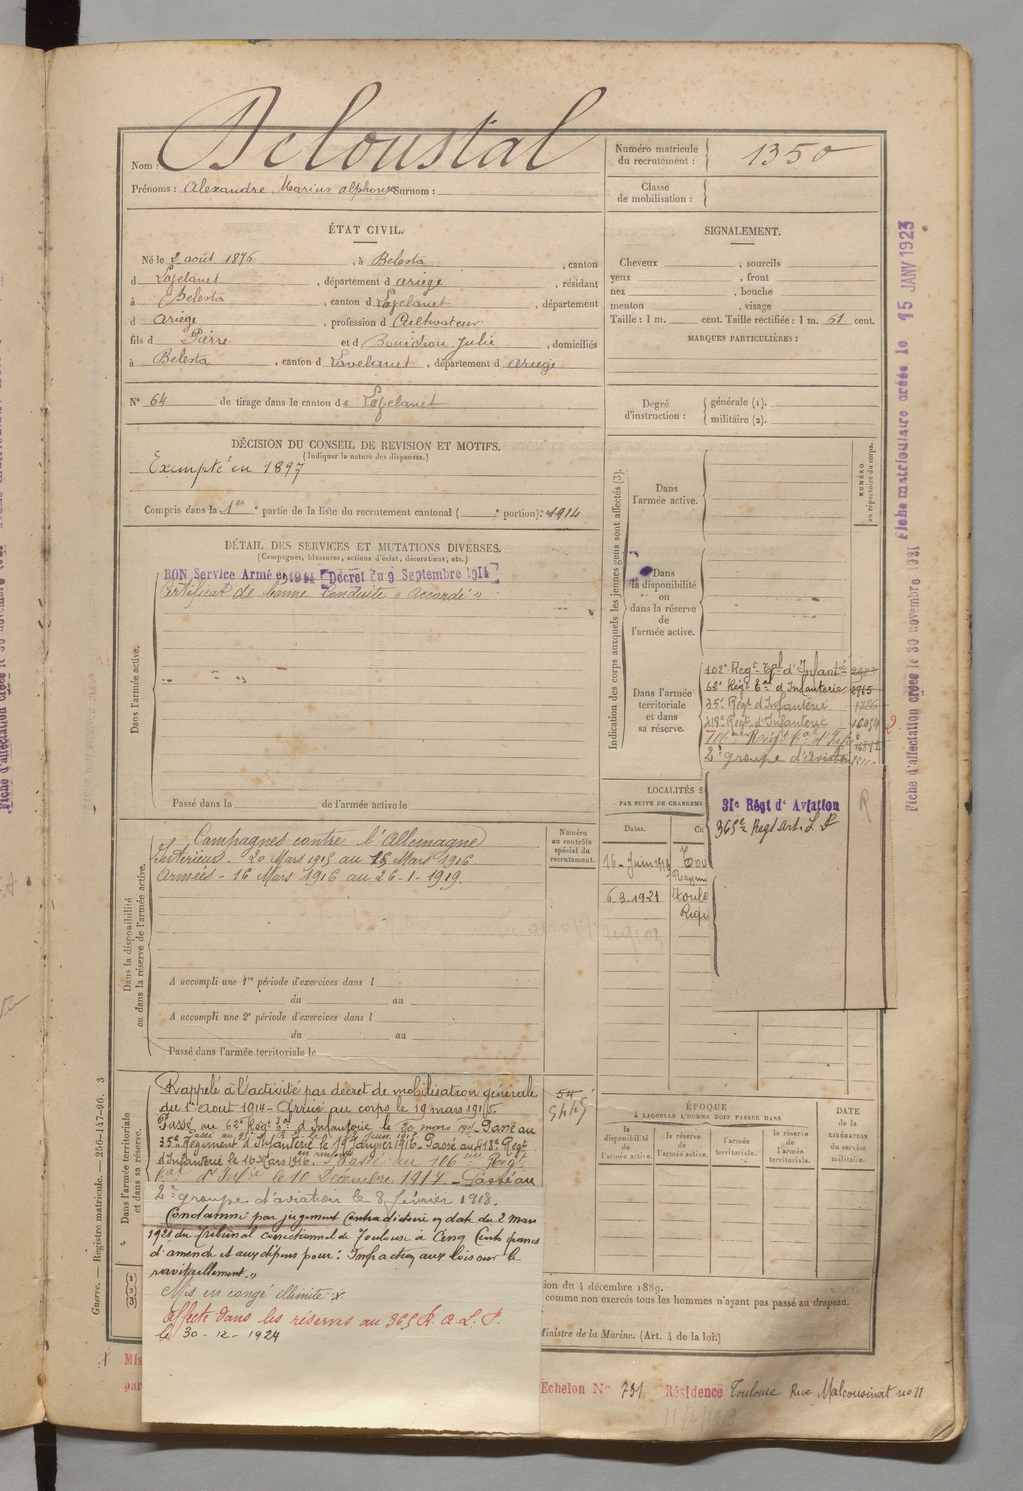 Nom : Beloustal
Prénoms : Alexandre Marius alphonse Surnom :
Numéro matricule du recrutement : 1350
Classe de mobilisation :
ÉTAT CIVIL.
Né le 2 août 1876, à Belesta, canton
d Lavelanet, département d ariège, résidant
à Belesta, canton d Lavelanet, département
d Ariège, profession d Cultivateur
fils d Pierre et d Julie, domiciliés
à Belesta, canton d Lavelanet, département d ariège
N° 64 de tirage dans le canton de Lavelanet
SIGNALEMENT.
Cheveux , sourcils
yeux , front
nez , bouche
menton , visage
Taille : 1 m. cent. Taille rectifiée : 1 m. 51 cent.
MARQUES PARTICULIÈRES :
Degré d'instruction : générale (1).
militaire (2).
DÉCISION DU CONSEIL DE REVISION ET MOTIFS.
(Indiquer la nature des dispenses.)
Exempté en 1897
Compris dans la 1re partie de la liste du recrutement cantonal ( e portion) : 1914
DÉTAIL DES SERVICES ET MUTATIONS DIVERSES.
(Campagnes, blessures, actions d'éclat, décorations, etc.)
BON Service Armé en 1914 [Décret du 9 Septembre 1914]
Certificat de bonne Conduite « Accordé »
Dans l'armée active.
Passé dans la de l'armée active le
Indication des corps auxquels les jeunes gens sont affectés (3).
NUMÉRO au répertoire du corps.
Dans l'armée active.
Dans la disponibilité ou dans la réserve de l'armée active.
Dans l'armée territoriale et dans sa réserve.
102e Regt tal d'Infantie
62e Régt tal d'Infanterie 2965
35e Régt d'Infanterie
418e Régt d'Infanterie
106e Régt tal d'Inf
2e groupe d'aviation
31e Régt d'Aviation
365e Regt Art. L P
R
LOCALITÉS S
PAR SUITE DE CHANGEM
Dates.
16 Juin 1919
6 9 1921
Dans la disponibilité ou dans la réserve de l'armée active.
Campagnes contre l'Allemagne
Intérieur - 20 Mars 1915 au 15 Mars 1916.
Armées - 16 Mars 1916 au 26-1-1919.
Numéro au contrôle spécial du recrutement.
A accompli une 1re période d'exercices dans l
du au
A accompli une 2e période d'exercices dans l
du au
Passé dans l'armée territoriale le
Dans l'armée territoriale et dans sa réserve.
Rappelé à l'activité par décret de mobilisation générale
du 1er Aout 1914 - Arrivé au corps le 19 mars 1915.
Passé au 62e Régt tal d'Infanterie le 30 mars 1915 - Passé au
35e Régiment d'Infanterie le 19 Janvier 1916 - Passé au 418e Régt
d'Infanterie le 16 Mars 1916. Passé au 106e Régt
tal d'Infie le 10 Décembre 1917 - Passé au
2e groupe d'aviation le 8 février 1918.
Condamné par jugement Contradictoire en date du 2 Mars
1921 du Tribunal correctionnel de Toulouse à Cinq Cents francs
d'amende et aux dépens pour : Infraction aux lois sur le
ravitaillement.»
Mis en congé illimité
affecté dans les réserves au 365 R. A. L. P.
le 30-12-1924
ÉPOQUE
À LAQUELLE L'HOMME DOIT PASSER DANS
la disponibilité de l'armée active.
la réserve de l'armée active.
l'armée territoriale.
la réserve de l'armée territoriale.
DATE de la LIBÉRATION du service militaire.
ion du 4 décembre 1889.
comme non exercés tous les hommes n'ayant pas passé au drapeau.
Ministre de la Marine. (Art. 4 de la loi.)
Mis
par
Echelon N° 731 Résidence Toulouse Rue Malcousinat no 11
Guerre. — Registre matricule. — 256-147-96. 3
Fiche d'affectation créée le 30 novembre 1921 Fiche matriculaire créée le 15 JANV 1923